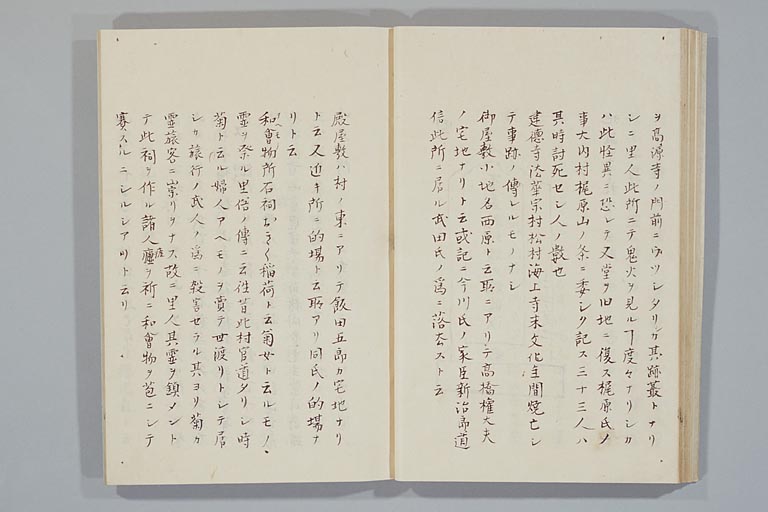 ヲ高源寺ノ門前ニウツシタリシカ其跡叢トナリ
シニ里人此所ニテ鬼火ヲ見ルヿ度々ナリシカ
ハ此怪異ニ恐レテ又堂ヲ旧地ニ復ス梶原氏ノ
事大内村梶原山ノ条ニ委シク記ス三十三人ハ
其時討死セシ人ノ数也
建徳寺法華宗村松村海上寺末文化年間焼亡シ
テ事跡ノ傳レルモノナシ
御屋敷小地名西原ト云所ニアリテ高橋権大夫
ノ宅地ナリト云或記ニ今川氏ノ家臣新治郎道
信此所ニ居ル武田氏ノ為ニ落去スト云
殿屋敷ハ村ノ東ニアリテ飯田五郎カ宅地ナリ
ト云又近キ所ニ的場ト云所アリ同氏ノ的場ナ
リト云
和會物所石祠おきく稲荷ト云菊女ト云ルモノノ
霊ヲ祭ル里俗ノ傳ニ云徃昔此村官道タリシ時
菊ト云ル婦人アヘモノヲ賣テ世渡リトシテ居
シカ旅行ノ武人ノ為ニ殺害セラル其ヨリ菊カ
霊旅客ニ祟リヲナス故ニ里人其霊ヲ鎮メント
テ此祠ヲ作ル諸人瘧ヲ祈ニ和會物ヲ苞ニシテ
賽スルニシルシアリト云リ